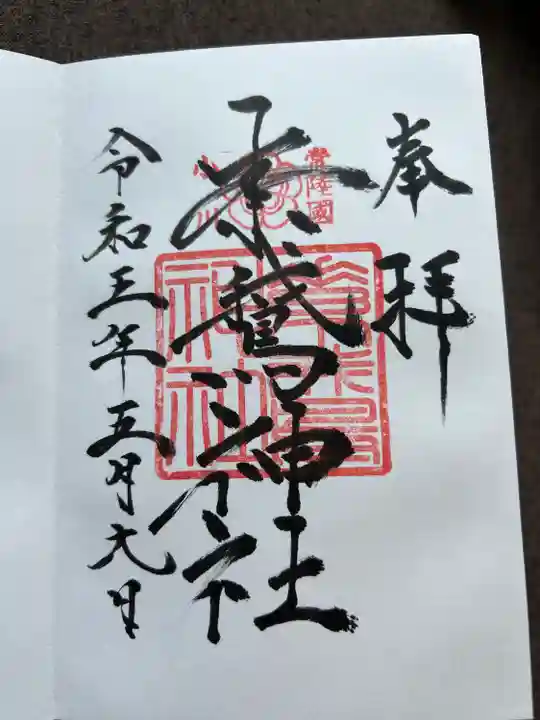 奉拝
常陸國
小川
素鵞神社
令和三年五月六日